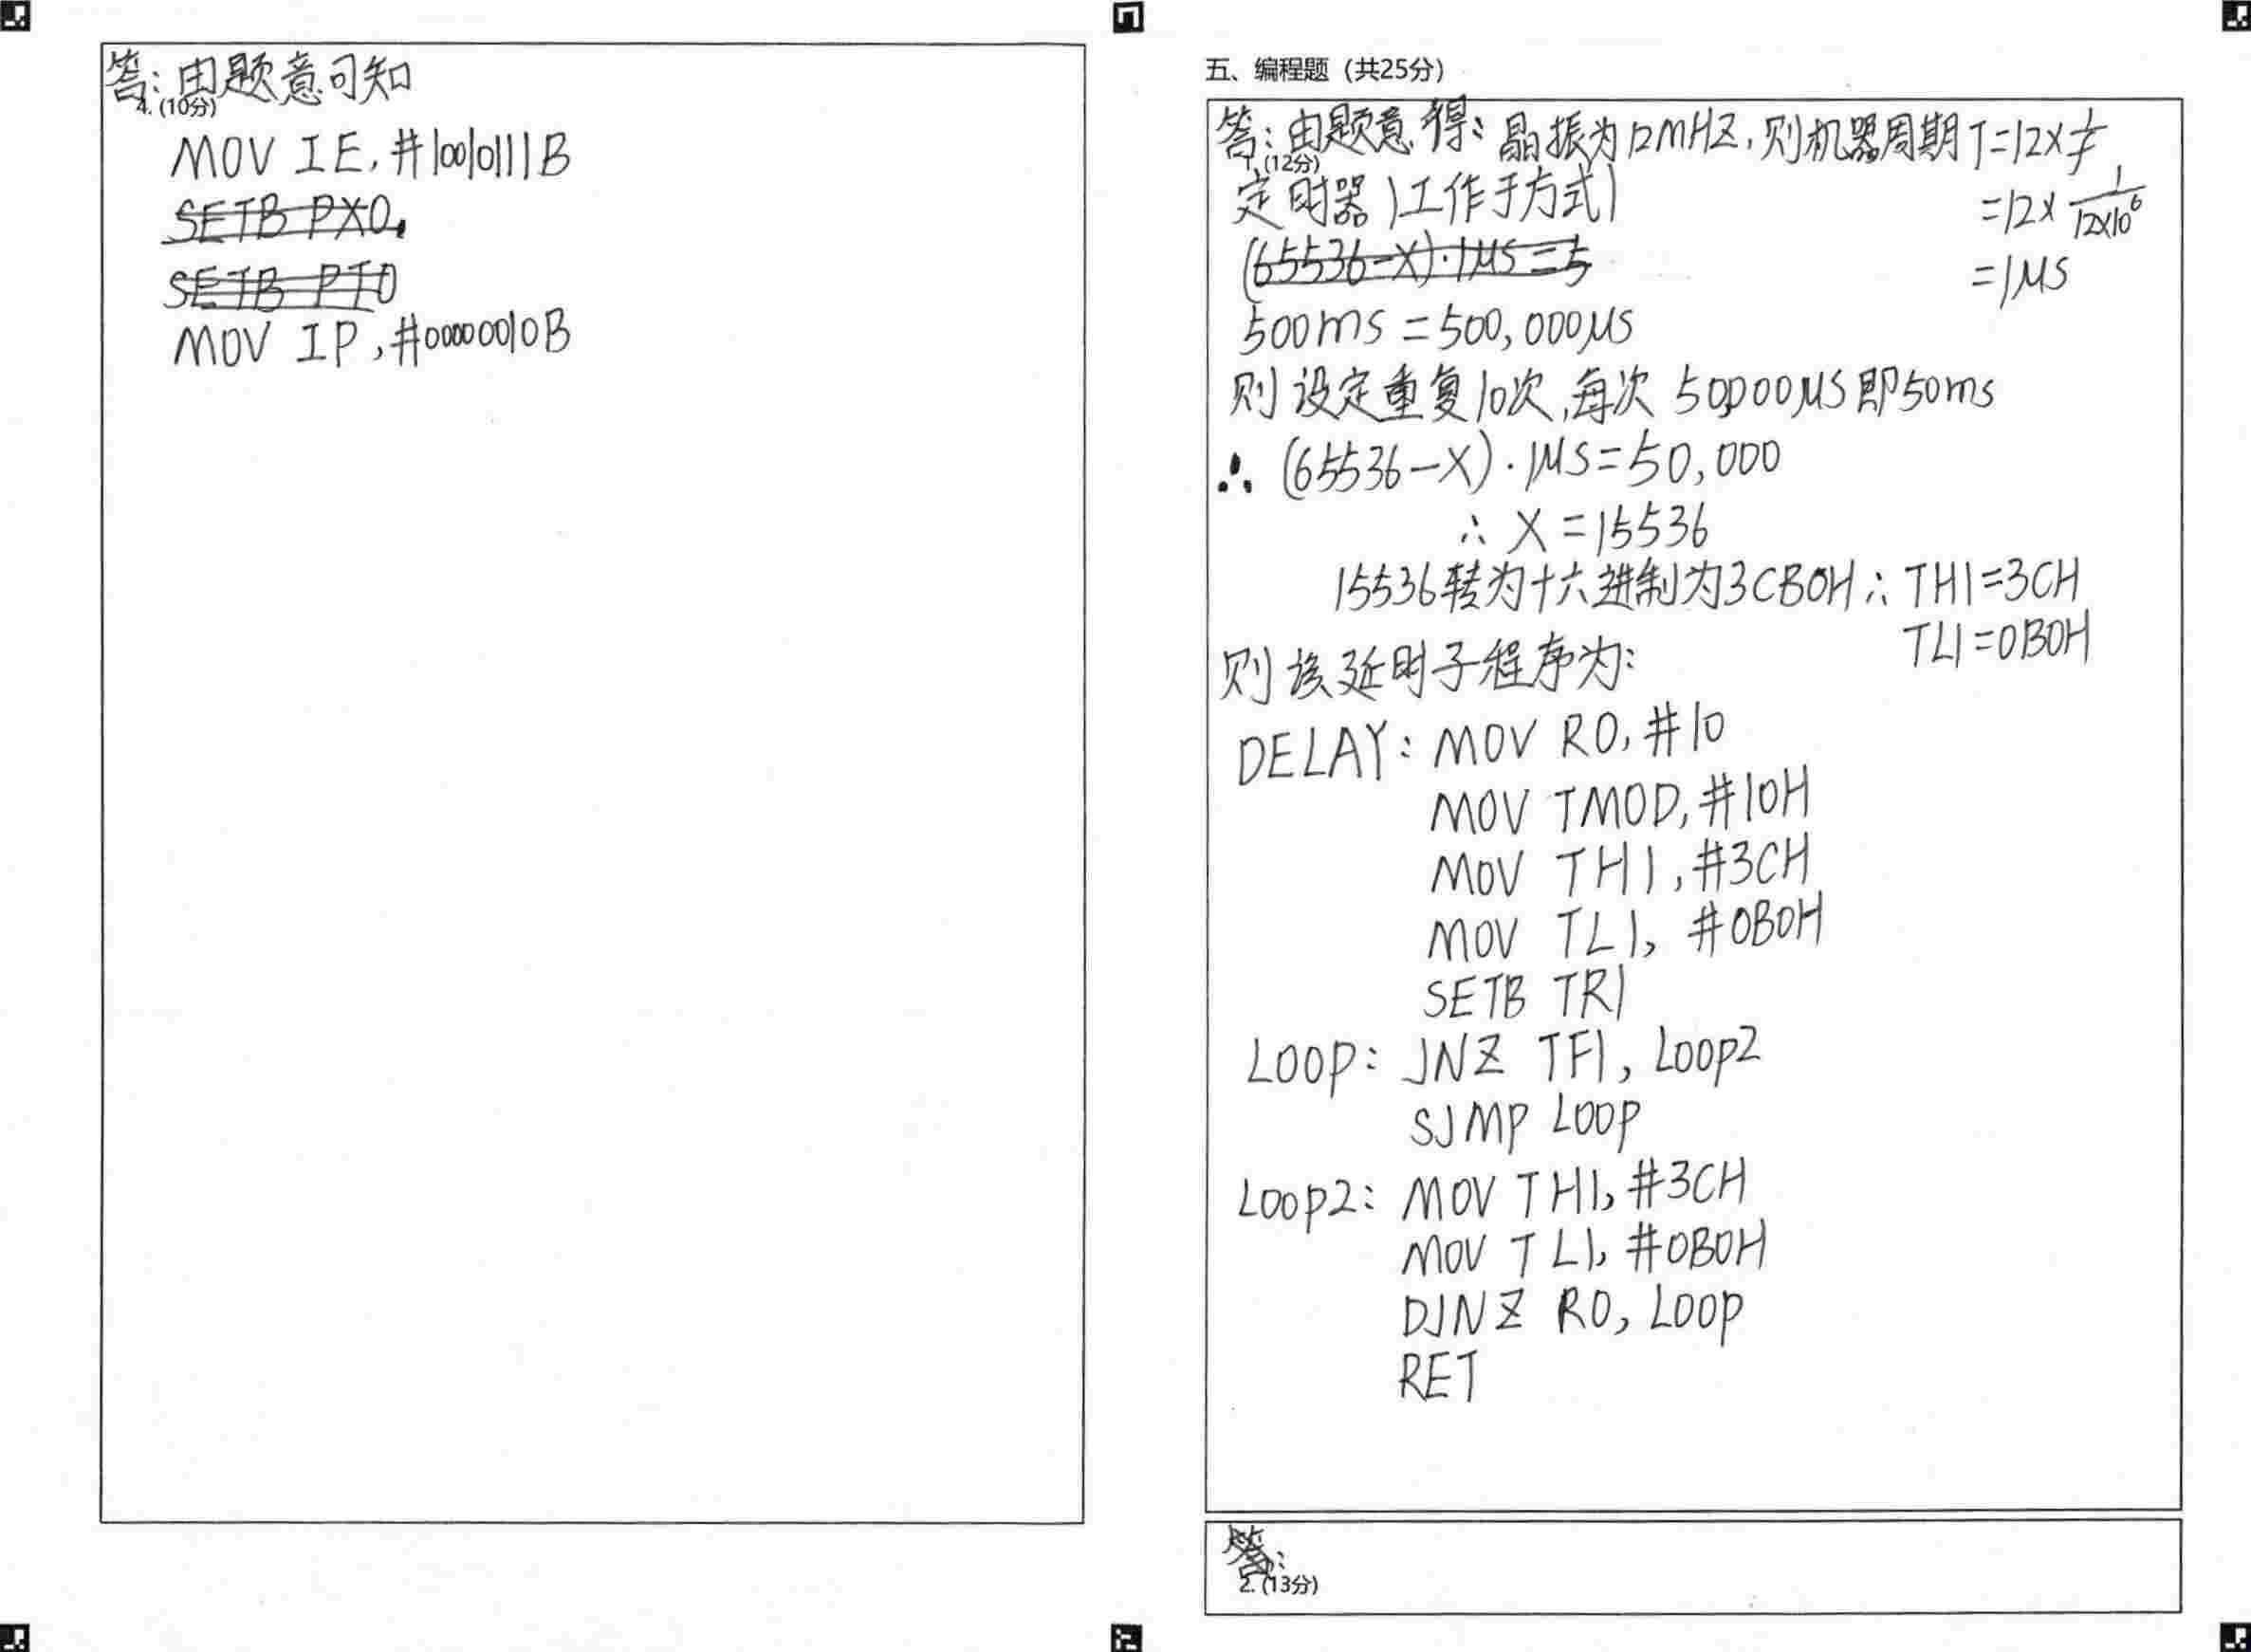 答:由题意可知
4. (10分)
MOV IE, #10010111B
SETB PX0.
SETB PT0
MOV IP, #00000010B
五、编程题（共25分）
答:由题意得: 晶振为12MHZ, 则机器周期 T=12×1/f
1. (12分)
=12×1/12×10^6
=1μs
定时器1工作于方式1
(65536-X)·1μs=5
500ms=500,000μs
则设定重复10次,每次 50,000μs即50ms
∴ (65536-X)·1μs=50,000
∴ X=15536
15536转为十六进制为3CB0H ∴ TH1=3CH
TL1=0B0H
则该延时子程序为:
DELAY: MOV R0, #10
MOV TMOD, #10H
MOV TH1, #3CH
MOV TL1, #0B0H
SETB TR1
LOOP: JNZ TF1, LOOP2
SJMP LOOP
LOOP2: MOV TH1, #3CH
MOV TL1, #0B0H
DJNZ R0, LOOP
RET
答:
2. (13分)